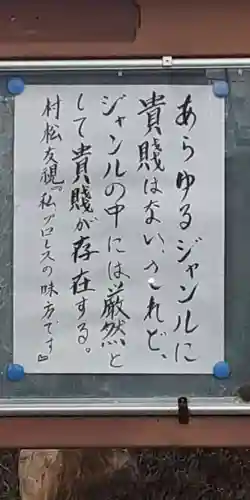 あらゆるジャンルに
貴賤はない。けれど、
ジャンルの中には厳然と
して貴賤が存在する。
村松友視『私、プロレスの味方です』